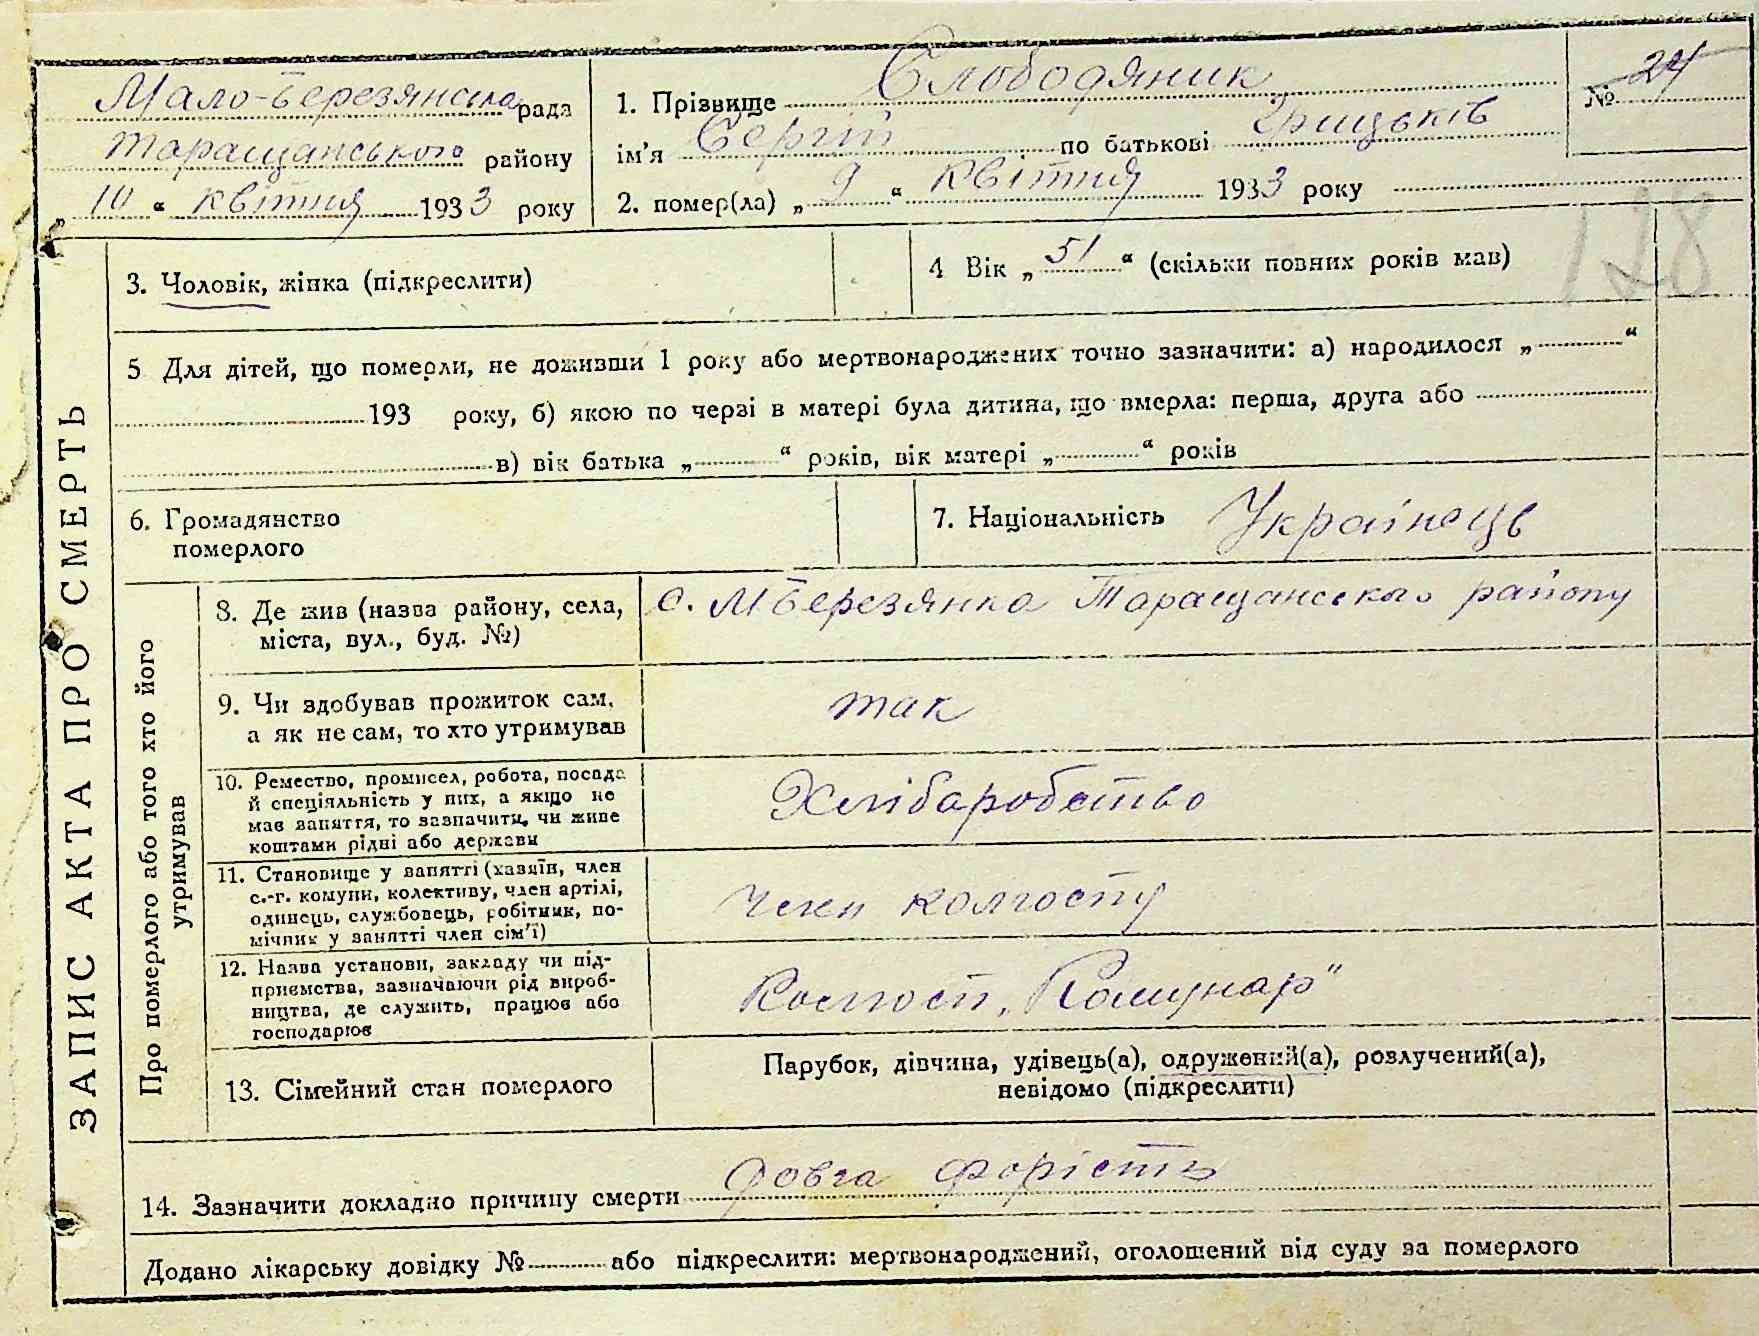 ЗАПИС АКТА ПРО СМЕРТЬ
Мало-Березянська рада
Таращанського району
„ 10 “ квітня 1933 року
1. Прізвище Слободяник
№ 24
ім'я Сергій по батькові Грицьків
2. помер(ла) „ 9 “ квітня 1933 року
128
3. Чоловік, жінка (підкреслити)
4 Вік „ 51 “ (скільки повних років мав)
5 Для дітей, що померли, не доживши 1 року або мертвонароджених точно зазначити: а) народилося „ “
193 року, б) якою по черзі в матері була дитина, що вмерла: перша, друга або
в) вік батька „ “ років, вік матері „ “ років
6. Громадянство
померлого
7. Національність Українець
Про померлого або того хто його
утримував
8. Де жив (назва району, села,
міста, вул., буд. №)
с. МБерезянка Таращанського району
9. Чи здобував прожиток сам,
а як не сам, то хто утримував
так
10. Ремество, промисел, робота, посада
й спеціяльність у них, а якщо не
мав заняття, то зазначити, чи живе
коштами рідні або держави
Хлібаробство
11. Становище у занятті (хазяїн, член
с.-г. комуни, колективу, член артілі,
одинець, службовець, робітник, по-
мічник у занятті член сім'ї)
Член колгоспу
12. Назва установи, закладу чи під-
приємства, зазначаючи рід вироб-
ництва, де служить, працює або
господарює
Колгосп „Комунар"
13. Сімейний стан померлого
Парубок, дівчина, удівець(а), одружений(а), розлучений(а),
невідомо (підкреслити)
14. Зазначити докладно причину смерти
Додано лікарську довідку № або підкреслити: мертвонароджений, оголошений від суду за померлого